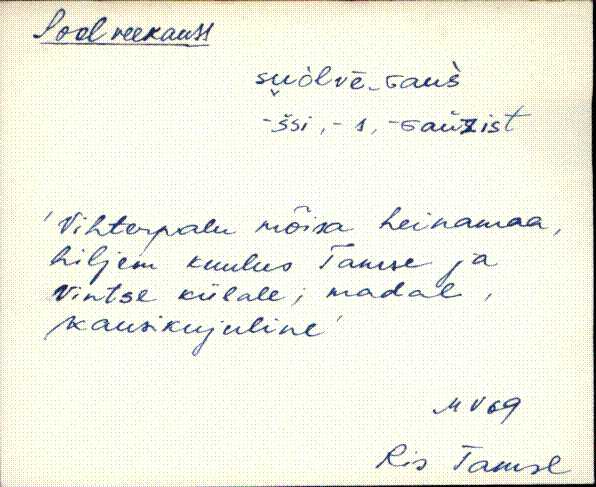 Soolveekauss
su̬òlvē-Gauš̀
-šsi, -s, -Gaùzist
'Vihterpalu mõisa heinamaa,
hiljem kuulus Tamse ja
Vintse külale; madal,
kausikujuline'
MV69
Ris Tamse